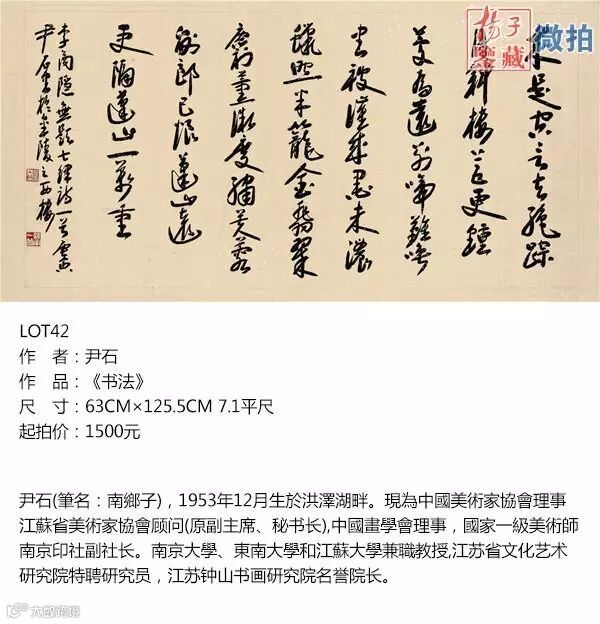 揚子鑒藏
微拍
來是空言去絕蹤
月斜樓上五更鐘
夢為遠別啼難喚
書被催成墨未濃
蠟照半籠金翡翠
麝薰微度繡芙蓉
劉郎已恨蓬山遠
更隔蓬山一萬重
李商隱無題七律詩一首
尹石書於金陵之西樓
LOT42
作 者：尹石
作 品：《书法》
尺 寸：63CM×125.5CM 7.1平尺
起拍价：1500元
尹石(筆名：南鄉子)，1953年12月生於洪澤湖畔。現為中國美術家協會理事
江蘇省美術家協會顾问(原副主席、秘书长),中國畫學會理事，國家一級美術師
南京印社副社长。南京大學、東南大學和江蘇大學兼職教授,江苏省文化艺术
研究院特聘研究员，江苏钟山书画研究院名誉院长。
大数跨境